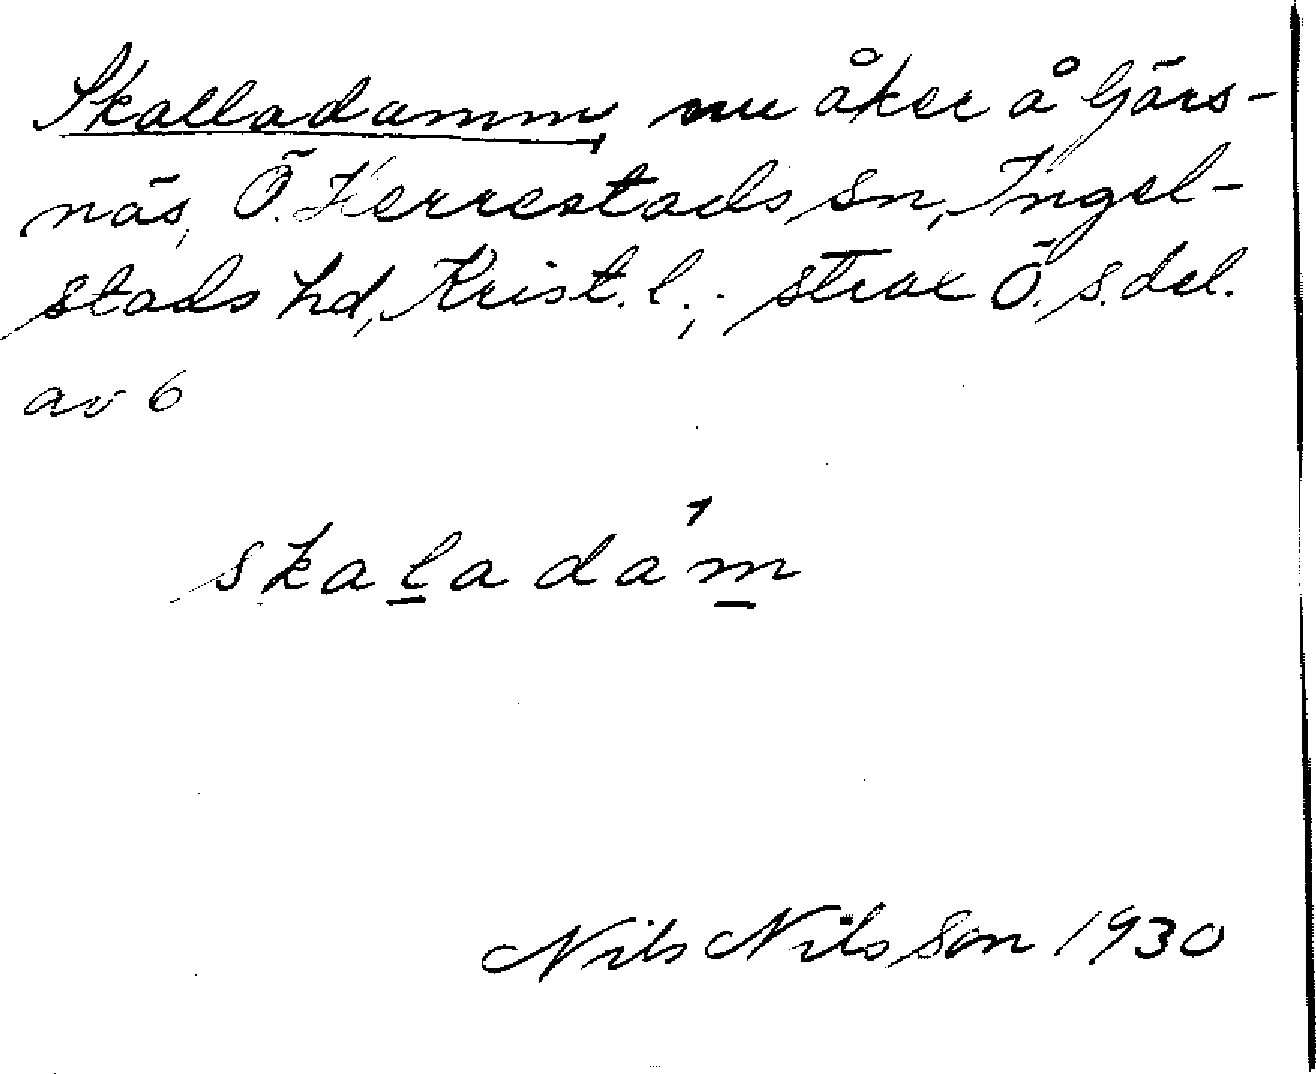 Skalladamm, nu åker å Gärs-
näs, Ö. Herrestads sn, Ingel-
stads hd, Krist. l.; strax Ö. s. del.
av 6
skaladám
Nils Nilsson 1930